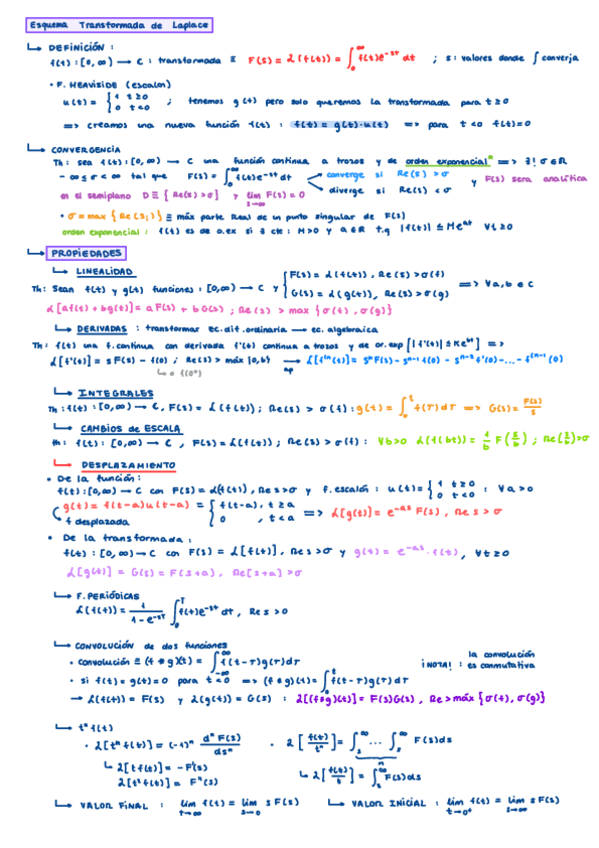 Esquema Transformada de Laplace
↳ DEFINICIÓN :
f(t) : [0, ∞) → C : transformada ≡ F(s) = L(f(t)) = ∫₀^∞ f(t)e^-st dt ; s : valores donde ∫ converja
• F. HEAVISIDE (escalon)
u(t) = { 1 t ≥ 0 ; 0 t < 0 ; tenemos g(t) pero solo queremos la transformada para t ≥ 0
=> creamos una nueva función f(t) : f(t) = g(t)·u(t) => para t < 0 f(t) = 0
↳ CONVERGENCIA
Th : sea f(t) : [0, ∞) → C una función continua a trozos y de orden exponencial => ∃! σ ∈ R
-∞ ≤ σ < ∞ tal que F(s) = ∫₀^∞ f(t)e^-st dt converge si Re(s) > σ y F(s) será analítica
diverge si Re(s) < σ
en el semiplano D ≡ { Re(s) > σ } y lim s→∞ F(s) = 0
• σ = max { Re(sⱼ) } ≡ máx parte Real de un punto singular de F(s)
orden exponencial : f(t) es de o.ex si ∃ cte : M > 0 y a ∈ R t.q |f(t)| ≤ Me^at ∀t ≥ 0
↳ PROPIEDADES
↳ LINEALIDAD
Th : Sean f(t) y g(t) funciones : [0, ∞) → C y { F(s) = L(f(t)), Re(s) > σ(f) ; G(s) = L(g(t)), Re(s) > σ(g) => ∀a, b ∈ C
L[af(t) + bg(t)] = a F(s) + b G(s) ; Re(s) > max { σ(f), σ(g) }
↳ DERIVADAS : transformar ec. dif. ordinaria → ec. algebraica
Th : f(t) una f. continua con derivada f'(t) continua a trozos y de or. exp [ |f'(t)| ≤ Ke^bt ] =>
L[f'(t)] = s F(s) - f(0) ; Re(s) > máx {0, b} → ap L[f^(n)(t)] = s^n F(s) - s^n-1 f(0) - s^n-2 f'(0) - ... - f^(n-1)(0)
↳ o f(0⁺)
↳ INTEGRALES
Th : f(t) : [0, ∞) → C, F(s) = L(f(t)) ; Re(s) > σ(f) : g(t) = ∫₀^t f(τ) dτ => G(s) = F(s)/s
↳ CAMBIOS de ESCALA
th : f(t) : [0, ∞) → C, F(s) = L(f(t)) ; Re(s) > σ(f) : ∀b>0 L(f(bt)) = 1/b F(s/b) ; Re(s/b) > σ
↳ DESPLAZAMIENTO
• De la función :
f(t) : [0, ∞) → C con F(s) = L(f(t)), Re s > σ y f. escalón : u(t) = { 1 t ≥ 0 ; 0 t < 0 : ∀a > 0
g(t) = f(t-a) u(t-a) = { f(t-a), t ≥ a ; 0 , t < a => L[g(t)] = e^-as F(s), Re s > σ
↳ f desplazada
• De la transformada :
f(t) : [0, ∞) → C con F(s) = L[f(t)], Re s > σ y g(t) = e^-as · f(t), ∀t ≥ 0
L[g(t)] = G(s) = F(s+a), Re[s+a] > σ
↳ F. PERIÓDICAS
L(f(t)) = 1/(1 - e^-sT) ∫₀^T f(t)e^-st dt, Re s > 0
↳ CONVOLUCIÓN de dos funciones
• convolución ≡ (f * g)(t) = ∫_-∞^∞ f(t-τ) g(τ) dτ ¡NOTA! : la convolución es conmutativa
• si f(t) = g(t) = 0 para t < 0 => (f * g)(t) = ∫₀^t f(t-τ) g(τ) dτ
→ L(f(t)) = F(s) y L(g(t)) = G(s) : L[(f*g)(t)] = F(s)G(s), Re > máx { σ(f), σ(g) }
↳ t^n f(t)
• L[t^n f(t)] = (-1)^n d^n F(s)/ds^n • L[f(t)/t^n] = ∫_s^∞ ... ∫_s^∞ F(s) ds
n
↳ L[t f(t)] = -F'(s) ↳ L[f(t)/t] = ∫_s^∞ F(s) ds
L[t² f(t)] = F''(s)
↳ VALOR FINAL : lim t→∞ f(t) = lim s→0 s F(s) ↳ VALOR INICIAL : lim t→0⁺ f(t) = lim s→∞ s F(s)